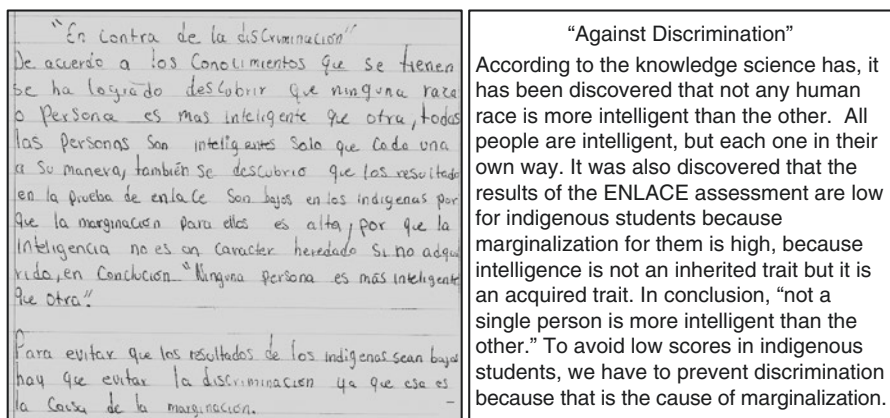 "En contra de la discriminación"
De acuerdo a los Conocimientos que se tienen
se ha logrado descobrir que ninguna raza
o Persona es mas inteligente que otra, todas
las Personas Son inteligentes Solo que Cada una
a Su manera, también se descubrio que los resultado
en la prueba de enlace Son bajos en los indigenas por
que la marginación Para ellos es alta, por que la
inteligencia no es un Caracter heredado Si no adqui
rido, en Conclución "Ninguna persona es más inteligente
que otra".
Para evitar que los resultados de los indigenas sean bajos
hay que evitar la discriminación ya que esa es
la Causa de la marginación.
"Against Discrimination"
According to the knowledge science has, it
has been discovered that not any human
race is more intelligent than the other. All
people are intelligent, but each one in their
own way. It was also discovered that the
results of the ENLACE assessment are low
for indigenous students because
marginalization for them is high, because
intelligence is not an inherited trait but it is
an acquired trait. In conclusion, "not a
single person is more intelligent than the
other." To avoid low scores in indigenous
students, we have to prevent discrimination
because that is the cause of marginalization.